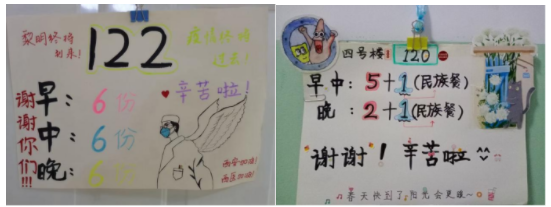 黎明终将
到来！
122
疫情终将
过去！
早：6份
中：6份
晚：6份
谢谢你们!!!
辛苦啦！
西安加油！
四号楼 120
早中：5+1(民族餐)
晚：2+1(民族餐)
谢谢！辛苦啦^^
春天快到了阳光会更暖~